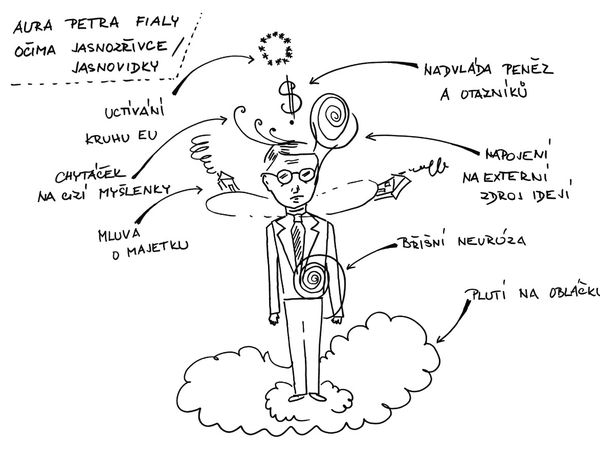 AURA PETRA FIALY
OČIMA JASNOZŘIVCE/
JASNOVIDKY
UCTÍVÁNÍ
KRUHU EU
NADVLÁDA PENĚZ
A OTAZNÍKŮ
CHYTÁČEK
NA CIZÍ MYŠLENKY
NAPOJENÍ
NA EXTERNÍ
ZDROJ IDEJÍ
MLUVA
O MAJETKU
BŘIŠNÍ NEURÓZA
PLUTÍ NA OBLÁČKU
$